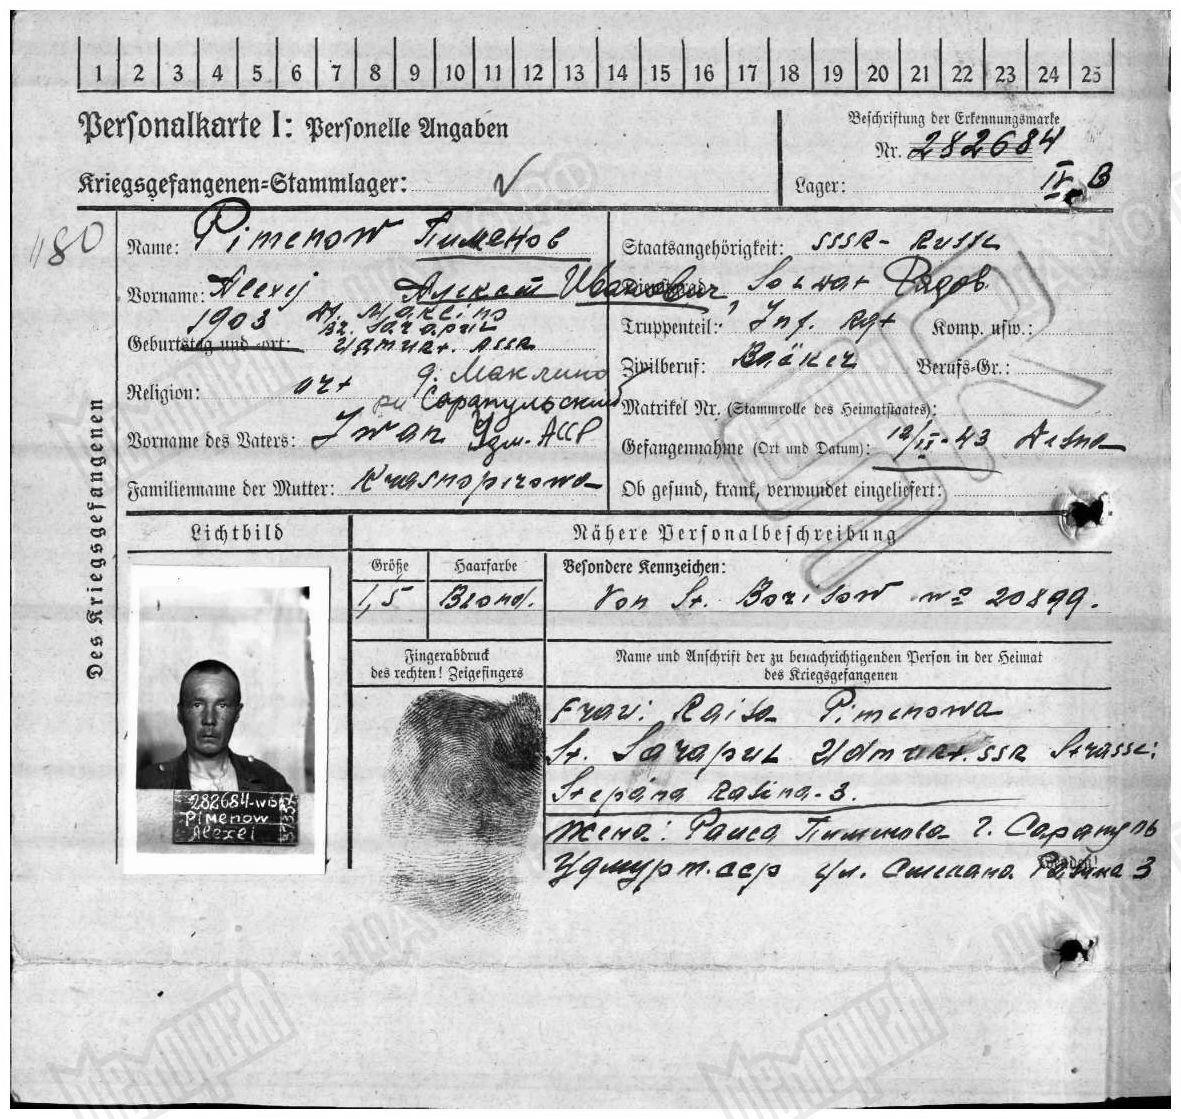 1 2 3 4 5 6 7 8 9 10 11 12 13 14 15 16 17 18 19 20 21 22 23 24 25
Personalkarte I: Personelle Angaben
Beschriftung der Erkennungsmarke
Nr. 282684
Kriegsgefangenen=Stammlager:
Lager: IV B
1180
Des Kriegsgefangenen
Name: Pimenow Пименов
Vorname: Alexej Алексей Иванович
1903 D. Maklino
Bz. Sarapul
Geburtstag und -ort: Udmurt. ASSR
д. Маклино
Religion: ort
Сарапульский
Удм. АССР
Vorname des Vaters: Iwan
Familienname der Mutter: Krasnopirowa
Staatsangehörigkeit: SSSR - Russe
Dienstgrad: Soldat Рядов.
Truppenteil: Inf. Rgt Komp. usw.:
Zivilberuf: Bäcker Berufs-Gr.:
Matrikel Nr. (Stammrolle des Heimatstaates):
Gefangennahme (Ort und Datum): 12/II-43
Ob gesund, krank, verwundet eingeliefert:
Lichtbild
Nähere Personalbeschreibung
Größe Haarfarbe Besondere Kennzeichen:
1,5 Blond. Von St. Borisow № 20899.
Fingerabdruck
des rechten! Zeigefingers
Name und Anschrift der zu benachrichtigenden Person in der Heimat
des Kriegsgefangenen
Frau: Raisa Pimenowa
St. Sarapul Udmurt. SSR Strasse:
Stepana Rasina-3.
Жена: Раиса Пименова г. Сарапуль
Удмурт. сср ул. Степана Разина 3
Wenden!
282684-IVB
Pimenow
Alexei
Мемориал